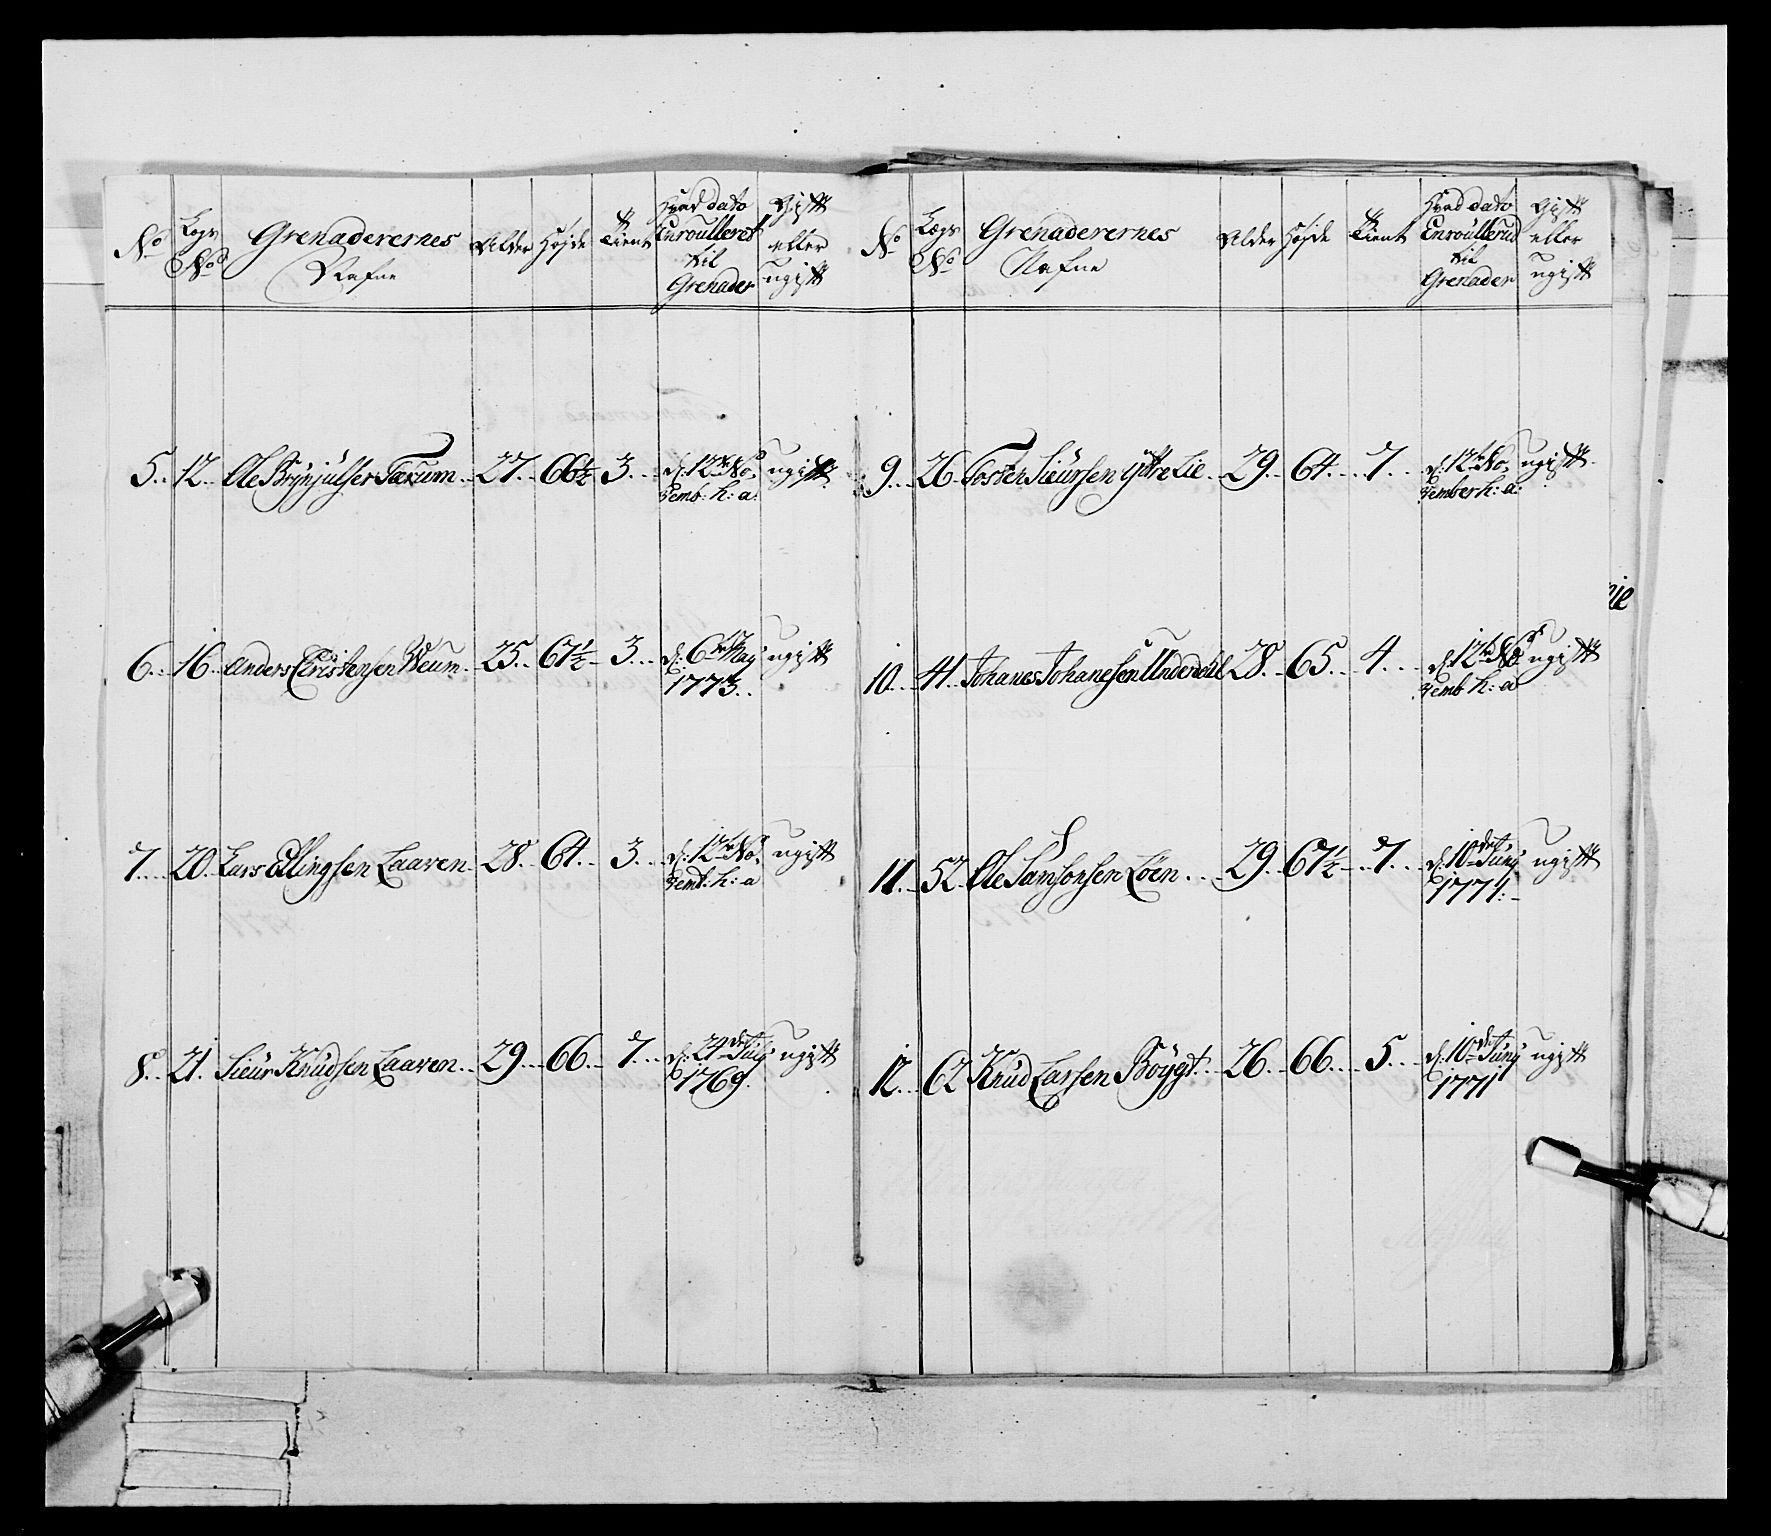 No Legs No Grenaderernes Nafne Alder Højde Tient Hvad dato Enroulleret til Grenader Gift eller ugift
5 12 Ole Brynjulfsen Tærum 27 66½ 3 d: 12te No
vemb: h: a: ugift
6 16 Anders Cristensen Weum 25 67½ 3 d: 6te May
1773 ugift
7 20 Lars Ellingsen Laaven 28 64 3 d: 12te No
vemb: h: a ugift
8 21 Sieur Knudsen Laaven 29 66 7 d: 24de July
1769 ugift
No Lægs No Grenaderernes Nafne Alder Højde Tient Hvad dato Enroullerud til Grenader Gift eller ugift
9 26 Tosten Sieursen Ytre Lie 29 64 7 d: 12te No
vember h: a: ugift
10 41 Johanes Johanesen Underdahl 28 65 4 d: 12te No
vemb h: a ugift
11 52 Ole Samsonsen Löen 29 67½ 7 d: 10de Juny
1771 ugift
12 62 Knud Larsen Böygt 26 66 5 d: 10de Juny
1771 ugift